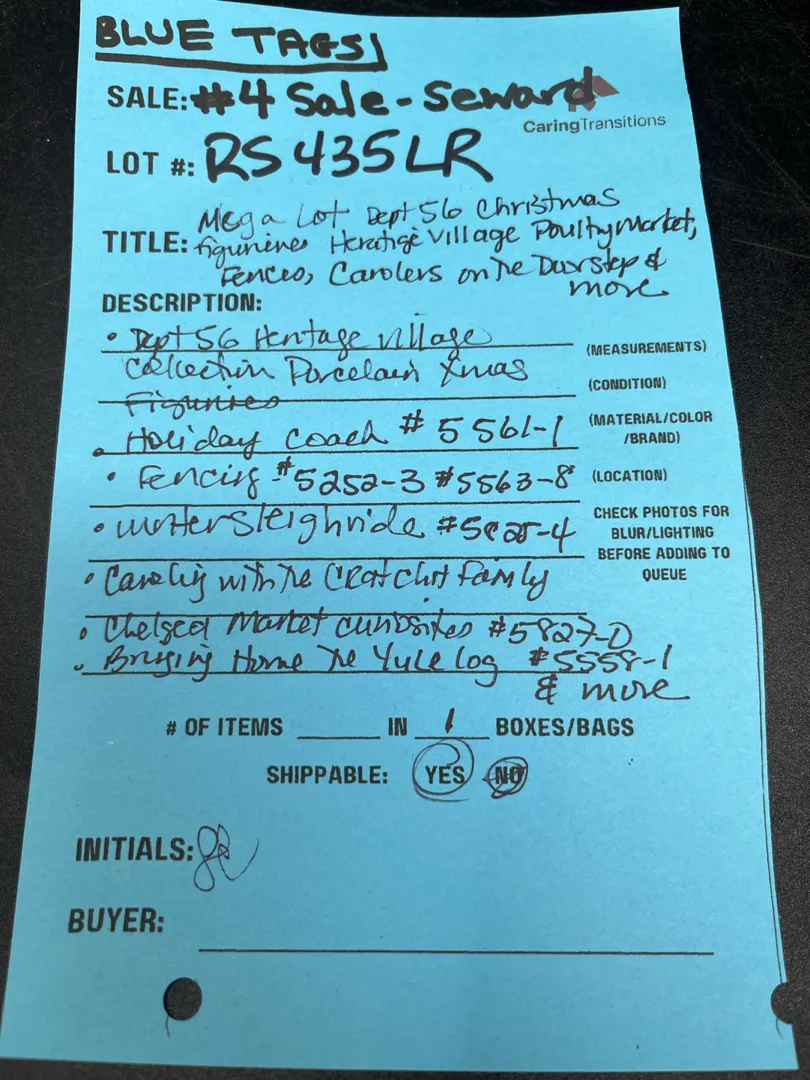 BLUE TAGS
SALE: #4 Sale - Seward
CaringTransitions
LOT #: RS435LR
TITLE: Mega Lot Dept 56 Christmas
figurines Heratige Village Poultry Market,
Fences, Carolers on the Doorstep &
more
DESCRIPTION:
• Dept 56 Heritage Village
Collection Porcelain Xmas
Figurines
(MEASUREMENTS)
(CONDITION)
(MATERIAL/COLOR
/BRAND)
(LOCATION)
CHECK PHOTOS FOR
BLUR/LIGHTING
BEFORE ADDING TO
QUEUE
• Holiday Coach #5561-1
• Fencing - #5252-3 #5563-8
• sleighride
• Caroling with the Cratchit Family
• Chelsea Market curiosites #5827-0
• Bringing Home The Yule log #5558-1
& more
# OF ITEMS ____ IN 1 BOXES/BAGS
SHIPPABLE: YES NO
INITIALS:
BUYER: